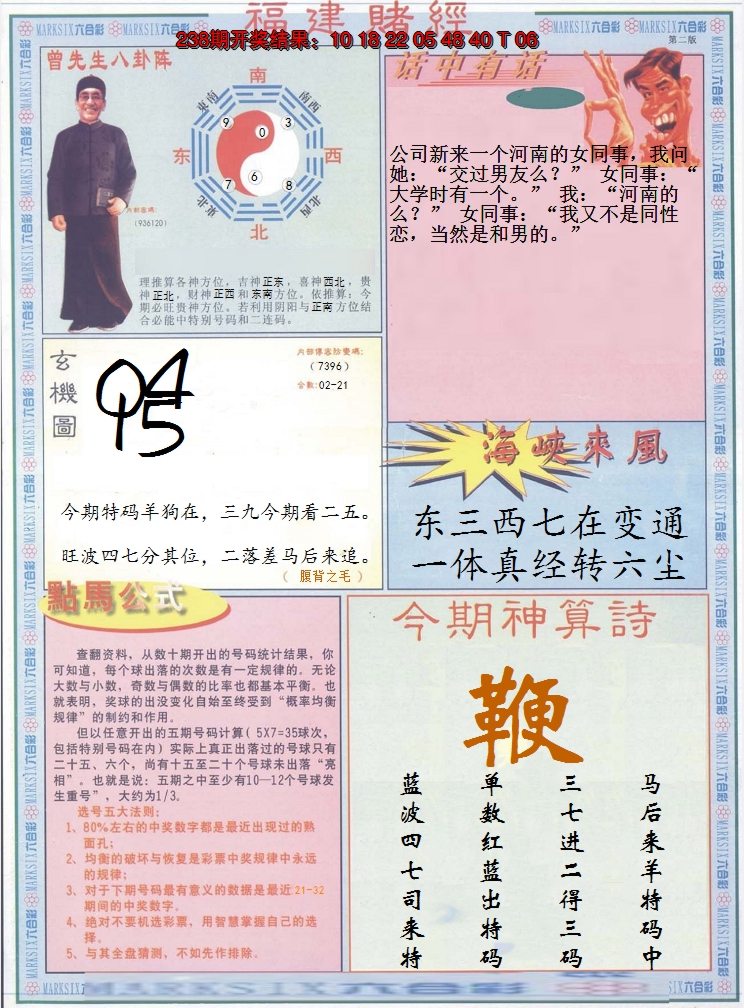 福建賭經
238期开奖结果：10 18 22 05 48 40 T 06
MARKSIX六合彩
第二版
曾先生八卦阵
南
东南
南西
9
0
3
东
西
6
7
8
东北
北西
北
内部密碼:
（936120）
理推算各神方位，吉神正东，喜神西北，贵
神正北，财神正西和东南方位。依推算：今
期必旺贵神方位。若利用阴阳与正南方位结
合必能中特别号码和二连码。
话中有话
公司新来一个河南的女同事，我问
她：“交过男友么？” 女同事：“
大学时有一个。” 我：“河南的
么？” 女同事：“我又不是同性
恋，当然是和男的。”
玄機圖
04
15
内部傳密防密碼:
（7396）
合数:02-21
今期特码羊狗在，三九今期看二五。
旺波四七分其位，二落差马后来追。
（ 腹背之毛 ）
海峽來風
东三西七在变通
一体真经转六尘
點馬公式
查翻资料，从数十期开出的号码统计结果，你
可知道，每个球出落的次数是有一定规律的。无论
大数与小数，奇数与偶数的比率也都基本平衡。也
就表明，奖球的出没变化自始至终受到“概率均衡
规律”的制约和作用。
但以任意开出的五期号码计算（ 5X7=35球次，
包括特别号码在内）实际上真正出落过的号球只有
二十五、六个，尚有十五至二十个号球未出落“亮
相”。也就是说：五期之中至少有10—12个号球发
生重号”，大约为1/3。
选号五大法则:
1、80%左右的中奖数字都是最近出现过的熟
面孔;
2、均衡的破坏与恢复是彩票中奖规律中永远
的规律;
3、对于下期号码最有意义的数据是最近21-32
期间的中奖数字。
4、绝对不要机选彩票，用智慧掌握自己的选
择。
5、与其全盘猜测，不如先作排除。
今期神算詩
鞭
马后来羊特码中
三七进二得三码
单数红蓝出特码
蓝波四七司来特